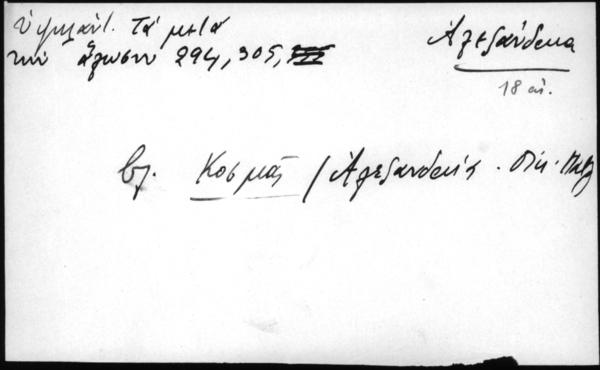 Ὑψηλάντ. Τὰ μετὰ
τὴν ἅλωσιν 294, 305,
Ἀλεξάνδρεια
18 αἰ.
βλ. Κοσμᾶς / Ἀλεξανδρείας. Οἰκ. Πατρ